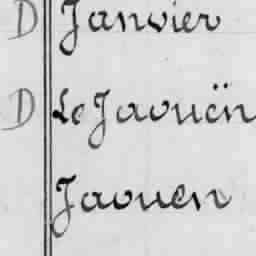 D Janvier
D Le Jaouën
Jaouen